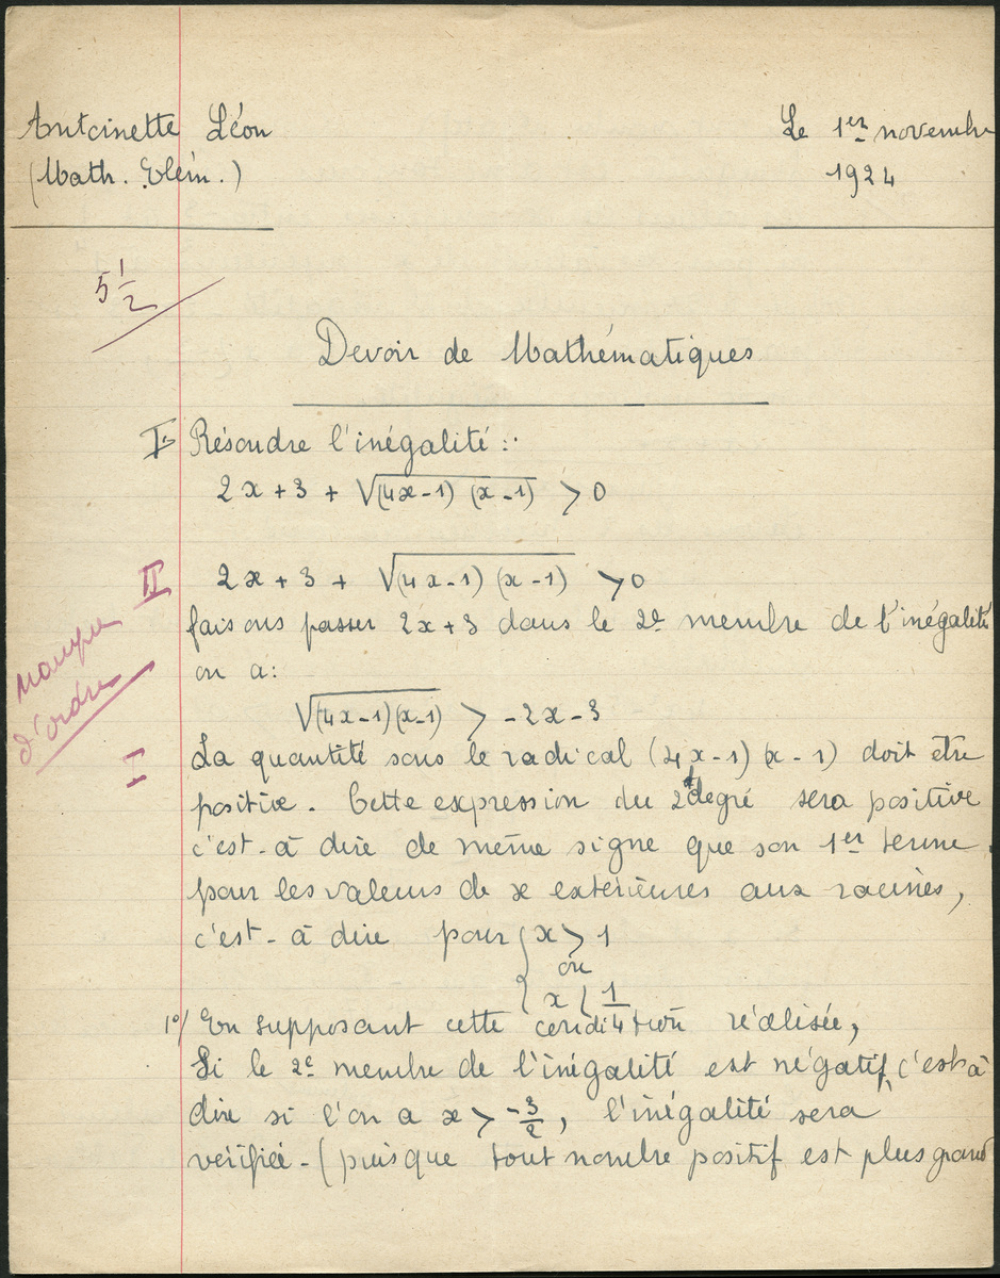 Antoinette Léon
(Math. Elém.)
Le 1er novembre
1924
5 1/2
Devoir de Mathématiques
I Résoudre l'inégalité :
2x+3 + √(4x-1)(x-1) > 0
II
2x+3 + √(4x-1)(x-1) > 0
faisons passer 2x+3 dans le 2e membre de l'inégalité
manque
d'ordre
on a :
√(4x-1)(x-1) > -2x-3
I
La quantité sous le radical (4x-1)(x-1) doit être
positive. Cette expression du 2d degré sera positive
c'est-à dire de même signe que son 1er terme
pour les valeurs de x extérieures aux racines,
c'est-à dire pour { x > 1
ou
x < 1/4
1o/ En supposant cette condition réalisée,
Si le 2e membre de l'inégalité est négatif, c'est à
dire si l'on a x > -3/2, l'inégalité sera
vérifiée - (puisque tout nombre positif est plus grand